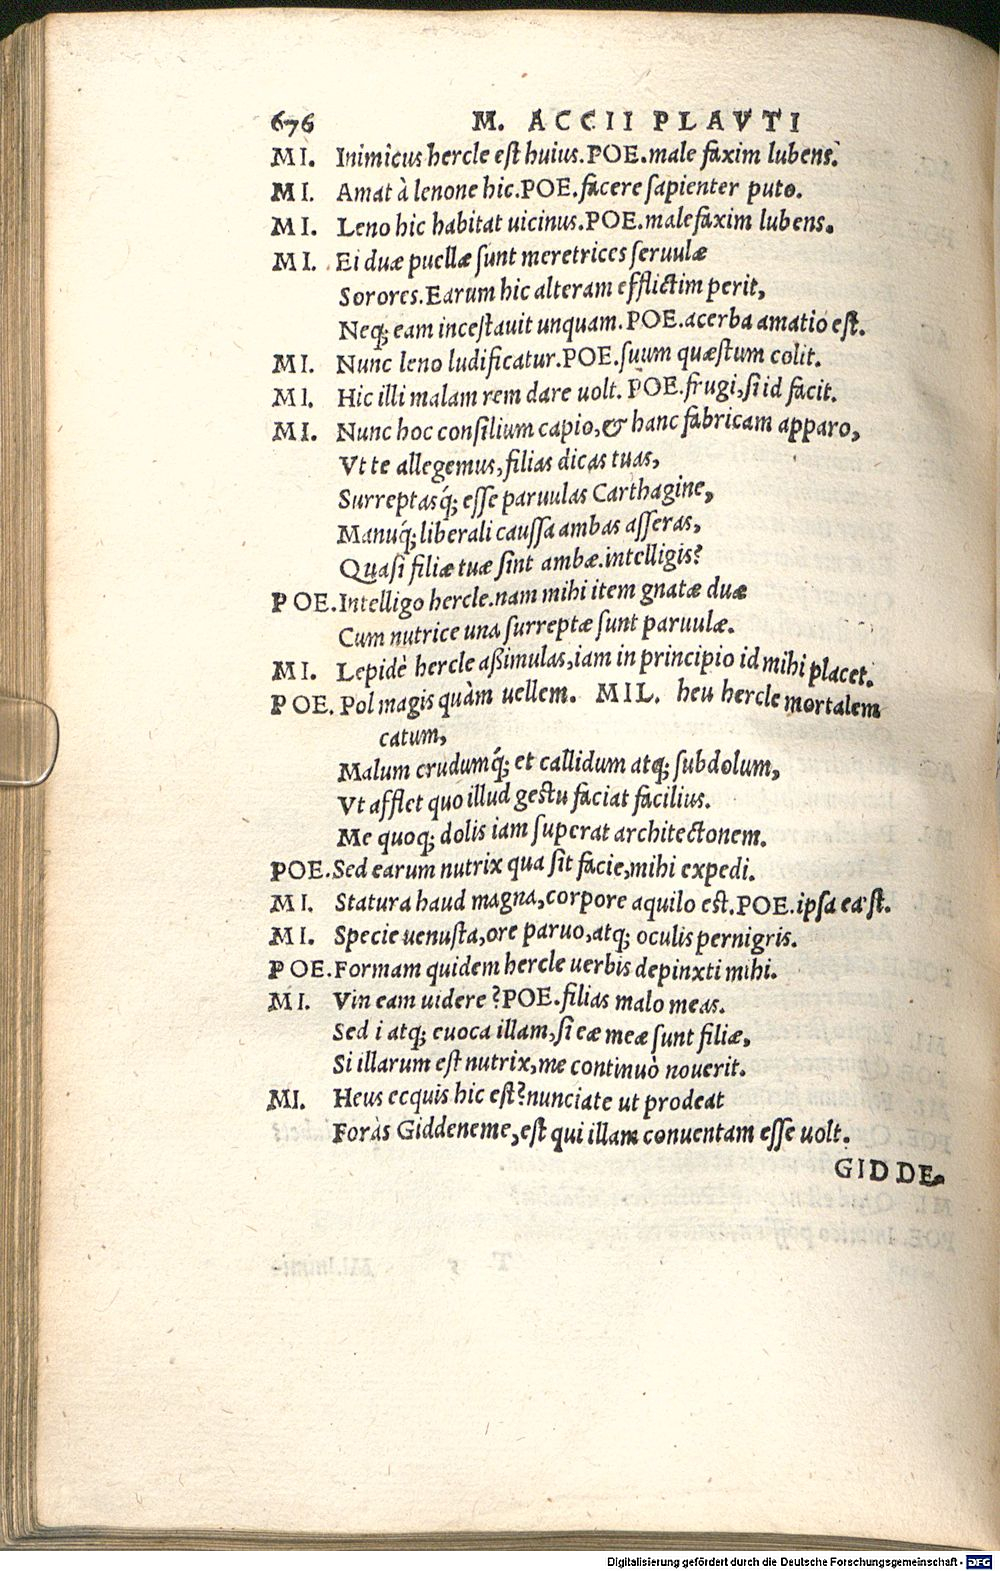 676 M. ACCII PLAVTI
MI. Inimicus hercle est huius. POE. male faxim lubens.
MI. Amat à lenone hic. POE. facere sapienter puto.
MI. Leno hic habitat uicinus. POE. male faxim lubens.
MI. Ei duæ puellæ sunt meretrices seruulæ
Sorores. Earum hic alteram efflictim perit,
Neq; eam incestauit unquam. POE. acerba amatio est.
MI. Nunc leno ludificatur. POE. suum quæstum colit.
MI. Hic illi malam rem dare uolt. POE. frugi, si id facit.
MI. Nunc hoc consilium capio, & hanc fabricam apparo,
Vt te allegemus, filias dicas tuas,
Surreptasq́; esse paruulas Carthagine,
Manuq́; liberali caussa ambas asseras,
Quasi filiæ tuæ sint ambæ. intelligis?
POE. Intelligo hercle. nam mihi item gnatæ duæ
Cum nutrice una surreptæ sunt paruulæ.
MI. Lepidè hercle aßimulas, iam in principio id mihi placet.
POE. Pol magis quàm uellem. MIL. heu hercle mortalem
catum,
Malum crudumq́; et callidum atq; subdolum,
Vt afflet quo illud gestu faciat facilius.
Me quoq; dolis iam superat architectonem.
POE. Sed earum nutrix qua sit facie, mihi expedi.
MI. Statura haud magna, corpore aquilo est. POE. ipsa ea'st.
MI. Specie uenusta, ore paruo, atq; oculis pernigris.
POE. Formam quidem hercle uerbis depinxti mihi.
MI. Vin eam uidere? POE. filias malo meas.
Sed i atq; euoca illam, si eæ meæ sunt filiæ,
Si illarum est nutrix, me continuò nouerit.
MI. Heus ecquis hic est? nunciate ut prodeat
Foràs Giddeneme, est qui illam conuentam esse uolt.
GIDDE-
Digitalisierung gefördert durch die Deutsche Forschungsgemeinschaft - DFG